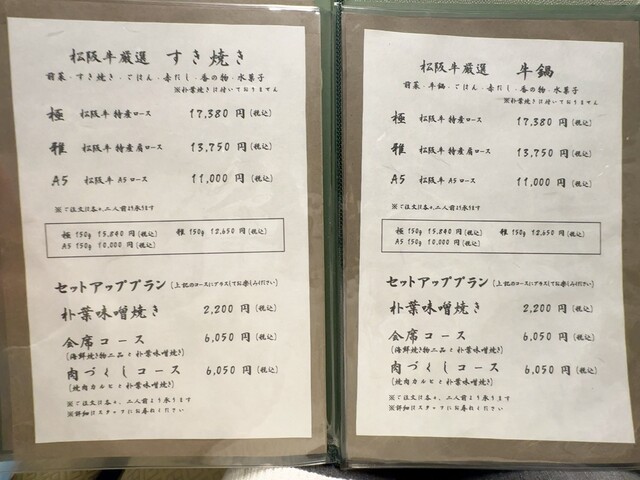 松阪牛厳選 すき焼き
前菜・すき焼き・ごはん・赤だし・香の物・水菓子
※朴葉焼きは付いておりません
極 松阪牛 特産ロース 17,380 円 (税込)
雅 松阪牛 特産肩ロース 13,750 円 (税込)
A5 松阪牛 A5ロース 11,000 円 (税込)
※ご注文は各々、二人前より承ります
極 150g 15,840 円 (税込) 雅 150g 12,650 円 (税込)
A5 150g 10,000 円 (税込)
セットアッププラン (上記のコースにプラスしてお楽しみください)
朴葉味噌焼き 2,200 円 (税込)
会席コース 6,050 円 (税込)
(海鮮焼き物二品と朴葉味噌焼き)
肉づくしコース 6,050 円 (税込)
(焼肉カルビと朴葉味噌焼き)
※ご注文は各々、二人前より承ります
※詳細はスタッフにお尋ねください
松阪牛厳選 牛鍋
前菜・牛鍋・ごはん・赤だし・香の物・水菓子
※朴葉焼きは付いておりません
極 松阪牛 特産ロース 17,380 円 (税込)
雅 松阪牛 特産肩ロース 13,750 円 (税込)
A5 松阪牛 A5ロース 11,000 円 (税込)
※ご注文は各々、二人前より承ります
極 150g 15,840 円 (税込) 雅 150g 12,650 円 (税込)
A5 150g 10,000 円 (税込)
セットアッププラン (上記のコースにプラスしてお楽しみください)
朴葉味噌焼き 2,200 円 (税込)
会席コース 6,050 円 (税込)
(海鮮焼き物二品と朴葉味噌焼き)
肉づくしコース 6,050 円 (税込)
(焼肉カルビと朴葉味噌焼き)
※ご注文は各々、二人前より承ります
※詳細はスタッフにお尋ねください